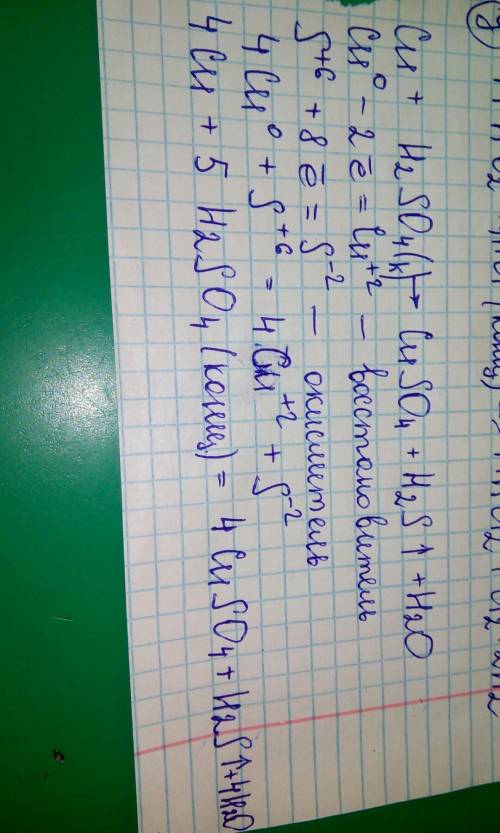 Cu + H2SO4(к) → CuSO4 + H2S↑ + H2O
Cu⁰ − 2ē = Cu⁺² − восстановитель
S⁺⁶ + 8ē = S⁻² − окислитель
4Cu⁰ + S⁺⁶ = 4Cu⁺² + S⁻²
4Cu + 5H2SO4(конц.) = 4CuSO4 + H2S↑ + 4H2O